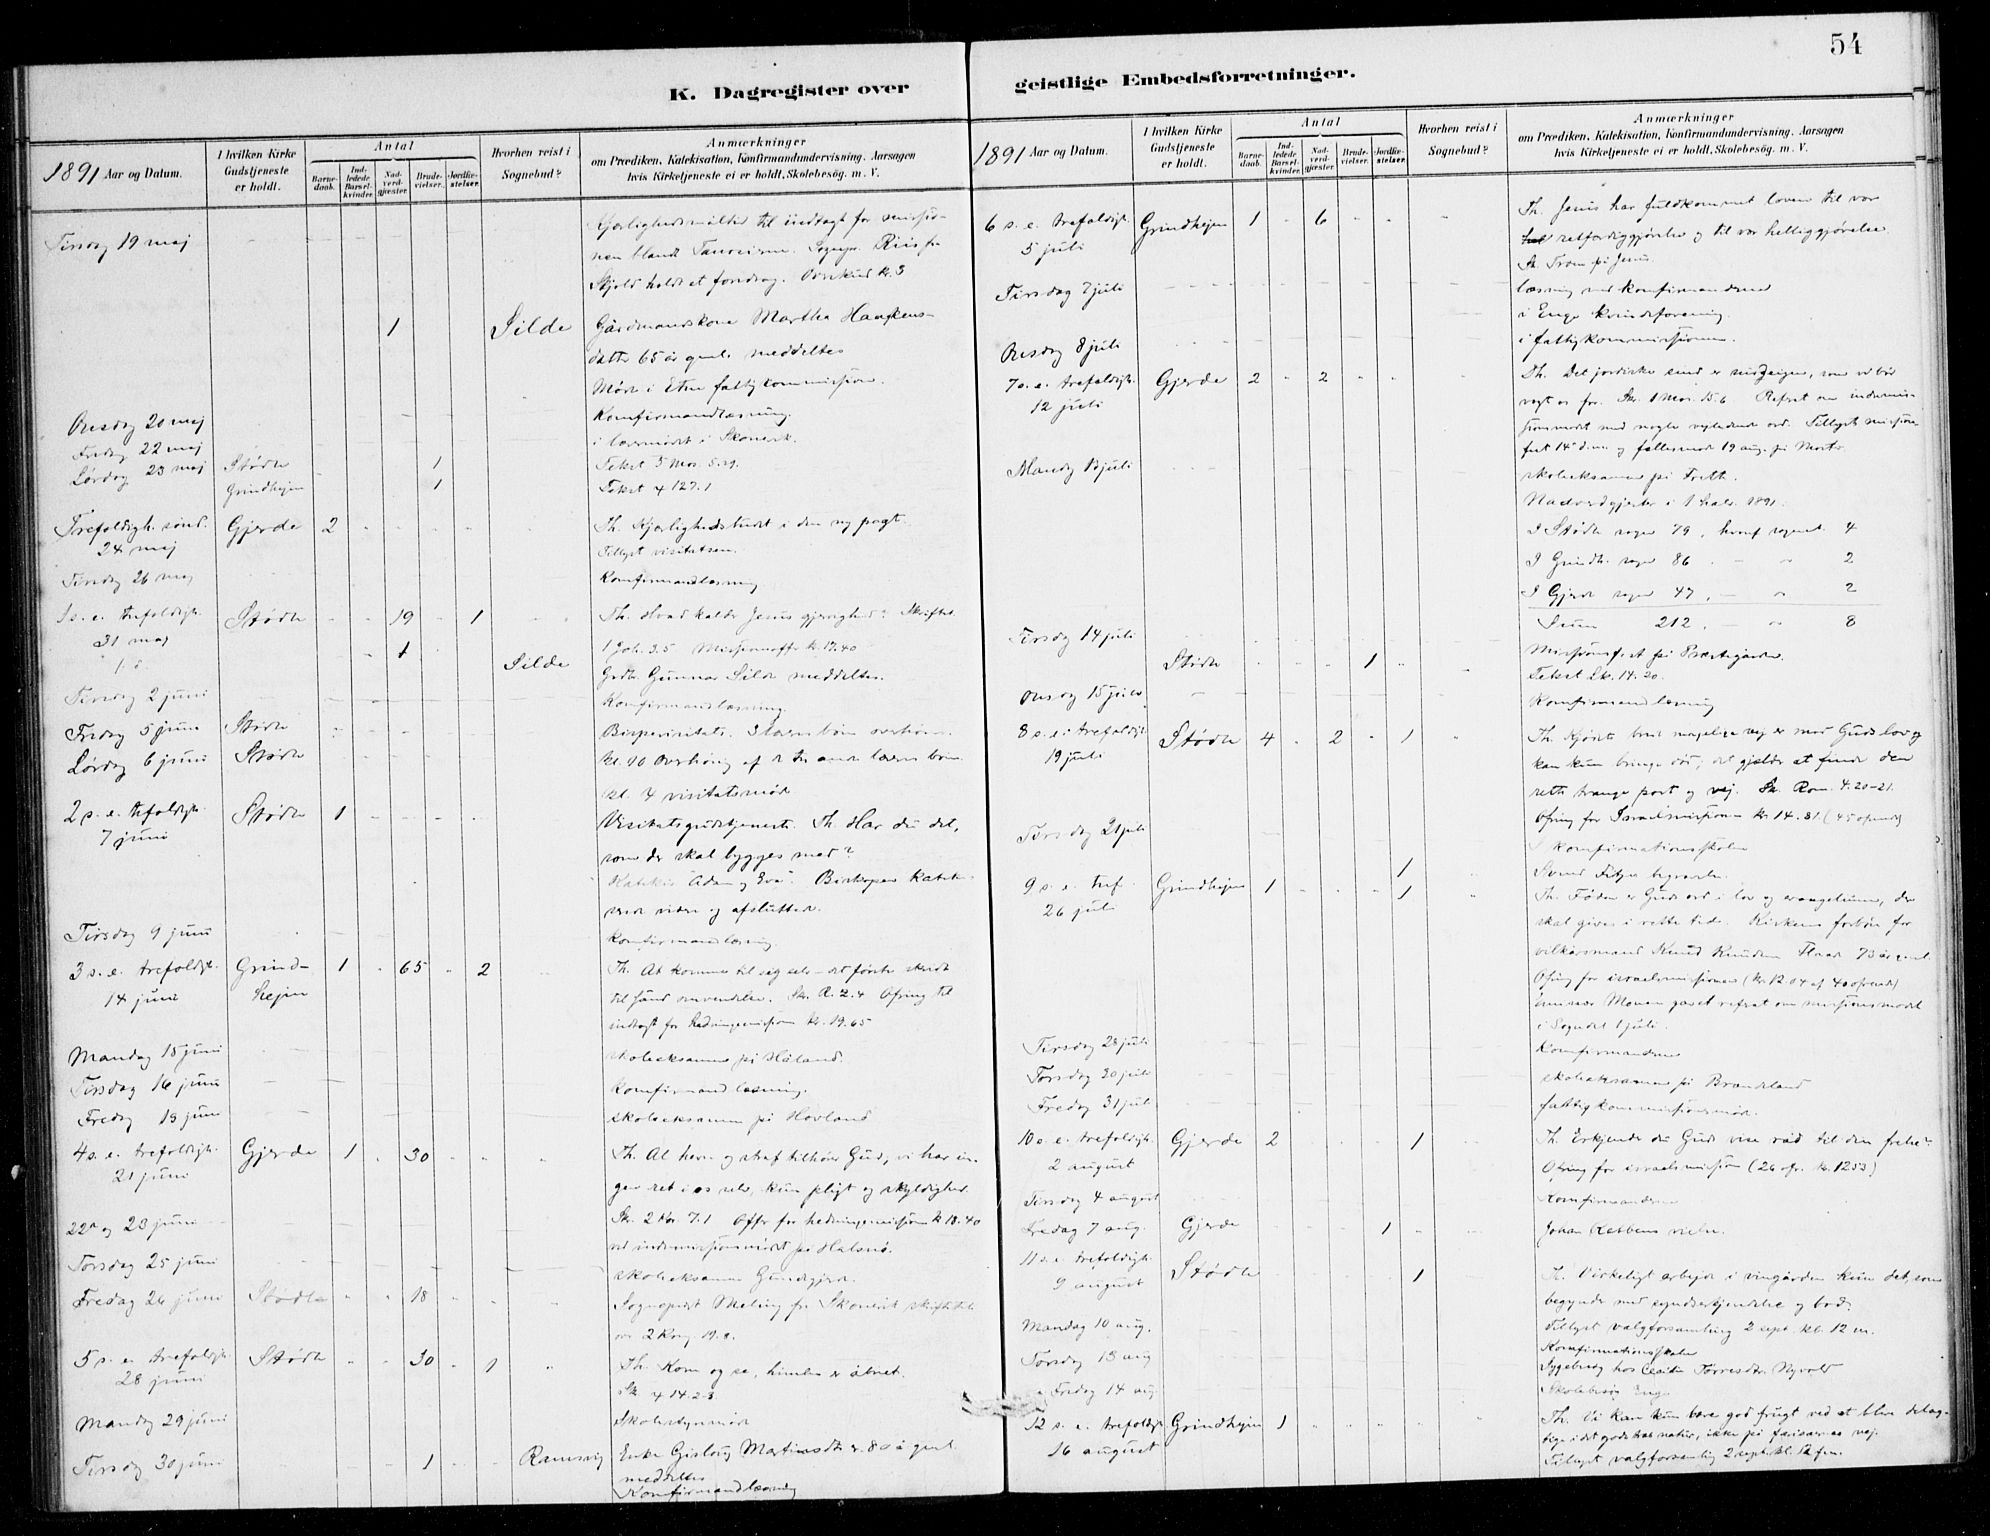 54
K. Dagregister over geistlige Embedsforretninger.
1891 Aar og Datum.
I hvilken Kirke Gudstjeneste er holdt.
Antal
Barnedaab.
Indledede Barselkvinder.
Nadverdgjæster.
Brudevielser.
Jordfæstelser.
Hvorhen reist i Sognebud?
Anmærkninger
om Prædiken, Katekisation, Konfirmandundervisning, Aarsagen
hvis Kirketjeneste ei er holdt, Skolebesøg, m. V.
Tirsdag 19 maj
Kjærlighedsmåltid til indtægt for missio-
nen blandt . Riis fra
Skjold holdt et foredrag. kr. 3
1 Silde Gårdmandskone Martha Haagkens-
datter 65 år gml. meddeltes
Møde i Etne fattigkommission.
Onsdag 20 maj Konfirmandlæsning.
Fredag 22 maj i Skonevik.
Lørdag 23 maj Stødle 1 Tekst 5 Mos. 5.29.
Grindhejm 1 Tekst 127.1
Trefoldigh. sønd. Gjerde 2 Th. Kjærlighedsbudet i den ny pagt.
24 maj Tillyst visitatsen.
Tirsdag 26 maj Konfirmandlæsning
1 s. e. trefoldigh. Stødle 19 1 Th. Hvad kalder Jesus gjerrighed? Skriftet.
31 maj 1 Joh. 3.5 Missionsoffer kr. 17.40
1 Silde Gunnar Silde meddeltes.
Tirsdag 2 juni Konfirmandlæsning.
Fredag 5 juni Stødle Bispevisitats.
Lørdag 6 juni Stødle kl. 10 Overhøring af
kl. 4 visitatsmøde
2 s. e. trefoldigh. Stødle 1 Visitatsgudstjeneste. Th. Har du det,
7 juni som der skal bygges med?
"Adam og Eva". Bispen
videre og afsluttede.
Tirsdag 9 juni Konfirmandlæsning.
3 s. e. trefoldigh. Grind- 1 65 2 Th. At komme til sig selv – det første skridt
14 juni hejm til sand omvendelse. Sk. R. 2.4 Ofring til
indtægt for hedningemission kr. 19.65
Mandag 15 juni skoleeksamen på Håland.
Tirsdag 16 juni Konfirmandlæsning.
Fredag 19 juni skoleeksamen på Hovland
4 s. e. trefoldigh. Gjerde 1 30 Th. At hevn og straf tilhører Gud, vi har in-
21 juni gen ret i os selv, kun pligt og skyldighed.
Sk. 2 Kor 7.1 Offer for hedningemission kr 18.40
22de og 23 juni ved indremissionsmødet på Halsnø.
Torsdag 25 juni skoleeksamen
Fredag 26 juni Stødle 18 Sogneprest Meling fra Skonevik skriftede
over 2 Kong 19.
5 s. e. trefoldigh. Stødle 30 1 Th. Kom og se, himlen er åbnet.
28 juni Sk. 14.2-3
Mandag 29 juni Skolestyremøde
Tirsdag 30 juni 1 Ramsvig Enke Gislaug Martinsdtr. 80 år gml.
meddeltes
Konfirmandlæsning
1891 Aar og Datum.
I hvilken Kirke Gudstjeneste er holdt.
Antal
Barnedaab.
Indledede Barselkvinder.
Nadverdgjæster.
Brudevielser.
Jordfæstelser.
Hvorhen reist i Sognebud?
Anmærkninger
om Prædiken, Katekisation, Konfirmandundervisning, Aarsagen
hvis Kirketjeneste ei er holdt, Skolebesøg, m. V.
6 s. e. trefoldigh. Grindhejm 1 6 Th. Jesus har fuldkommet loven til vor
5 juli retfærdiggjørelse og til vor helliggjørelse.
Sk. Troen på Jesus.
Tirsdag 7 juli læsning med konfirmanderne
i Enge kvindeforening.
Onsdag 8 juli i fattigkommissionen.
7 s. e. trefoldigh. Gjerde 2 2 Th. Det jordiske sind er , som vi bør
12 juli vogte os for. Sk. 1 Mos. 15.6 Referat om indremis-
sionsmødet med nogle vejledende ord. Tillyst missions-
fest 14de d.m. og fællesmøde 19 aug. på
Mandag 13 juli skoleeksamen på Fræth.
Nadverdgjester i 1 halv. 1891.
I Stødle sogn 79, 4
I Grindh. sogn 86 2
I Gjerde sogn 47 2
Sum 212 8
Tirsdag 14 juli Missionsfest på Prestegården.
Stødle 1 Tekst Lk. 14.20.
Onsdag 15 juli Konfirmandlæsning
8 s. e. trefoldigh. Stødle 4 2 1 Th. Kjødets brede magelige vej er mod Guds lov og
19 juli kan kun bringe død; det gjælder at finde den
rette trange port og vej. Sk. Rom. 4.20-21.
Ofring for Israelsmissionen kr 14.81 (45 )
Torsdag 21 juli I konfirmationsskolen
1 Svend begravelse.
9 s. e. tref. Grindhejm 1 1 Th. Føden er Guds ord i lov og evangelium, der
26 juli skal gives i rette tid. Kirkens forbøn for
vilkårsmand Knud Knudsen 73 år gml.
Ofring for israelsmissionen (kr. 12.04 af 40 )
Monen gav et referat om missionsmødet
i Sogndal 1 juli.
Tirsdag 28 juli Konfirmanderne
Torsdag 30 juli skoleeksamen på Brandeland
Fredag 31 juli fattigkommissionsmøde.
10 s. e. trefoldigh. Gjerde 2 1 Th. Erkjender du Guds vise råd til din frelse?
2 august Ofring for israelsmission (26 ofr. kr. 1253)
Tirsdag 4 august Konfirmanderne
Fredag 7 aug. Gjerde 1 Johan vielse.
11 s. e. trefoldigh. Stødle 1 Th. Virkeligt arbejde i vingården kun det, som
9 august begynder med syndserkjendelse og bod.
Tillyst valgforsamling 2 sept. kl. 12 m.
Mandag 10 aug. Konfirmationsskolen
Torsdag 13 aug Sygebesøg hos Torresdtr. Nyvold
Fredag 14 aug Skolebesøg Enge
12 s. e. trefoldigh. Grindhejm 1 Th. Vi kan kun bære god frugt ved at blive delag-
16 august tige i det gode træs natur, ikke på farisæernes vej.
Tillyst valgforsamling 2 sept. kl. 12 fm.